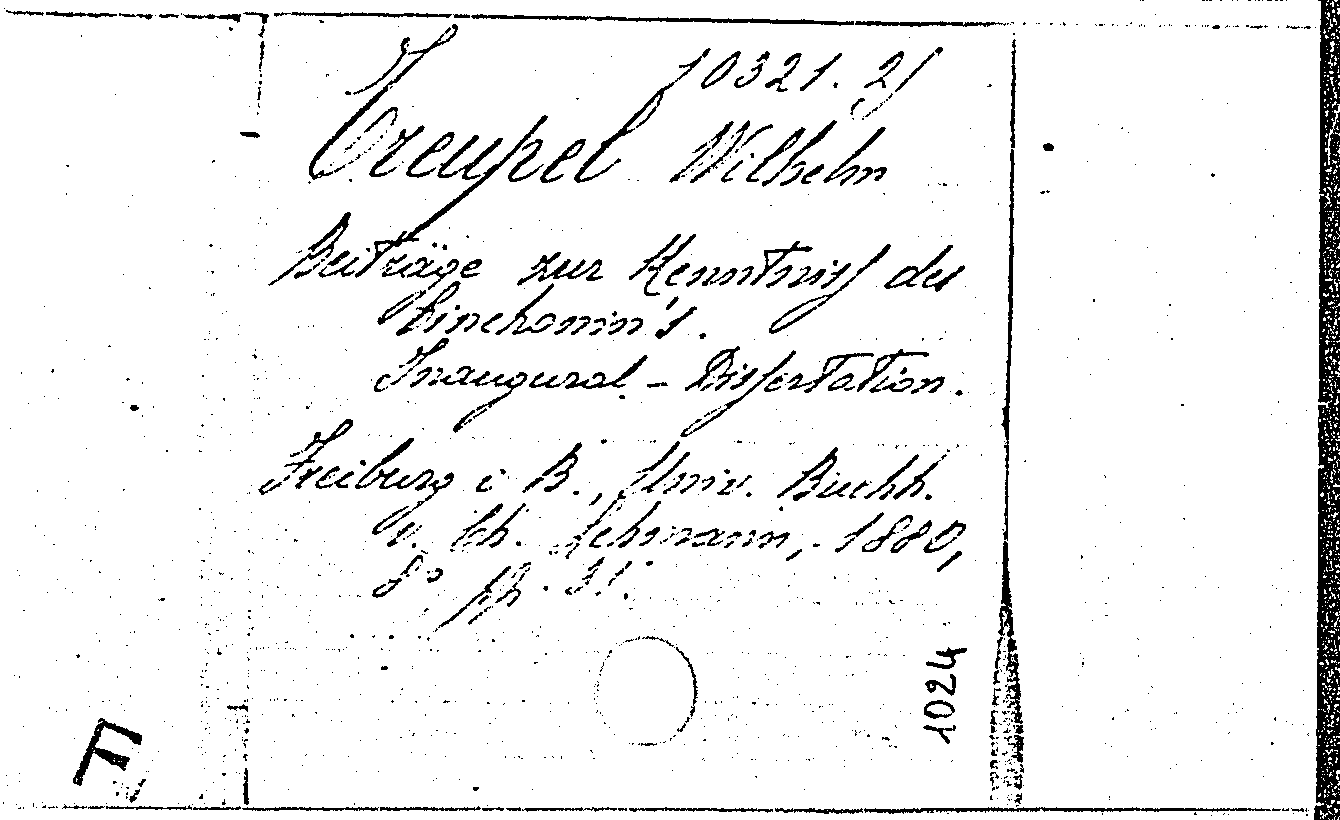 10321. 2)
Treupel Wilhelm
Beiträge zur Kenntniss des
Cinchonin's.
Inaugural - Dissertation.
Freiburg i B., Univ. Buchh.
v. Ch. Lehmann, 1880,
8° pp. 31.
1024
F